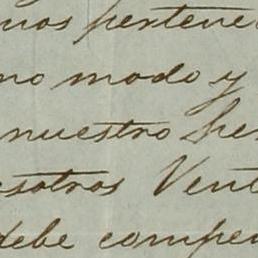 nos pertene
mo modo y
nuestro he
esotros Vent
debe compe